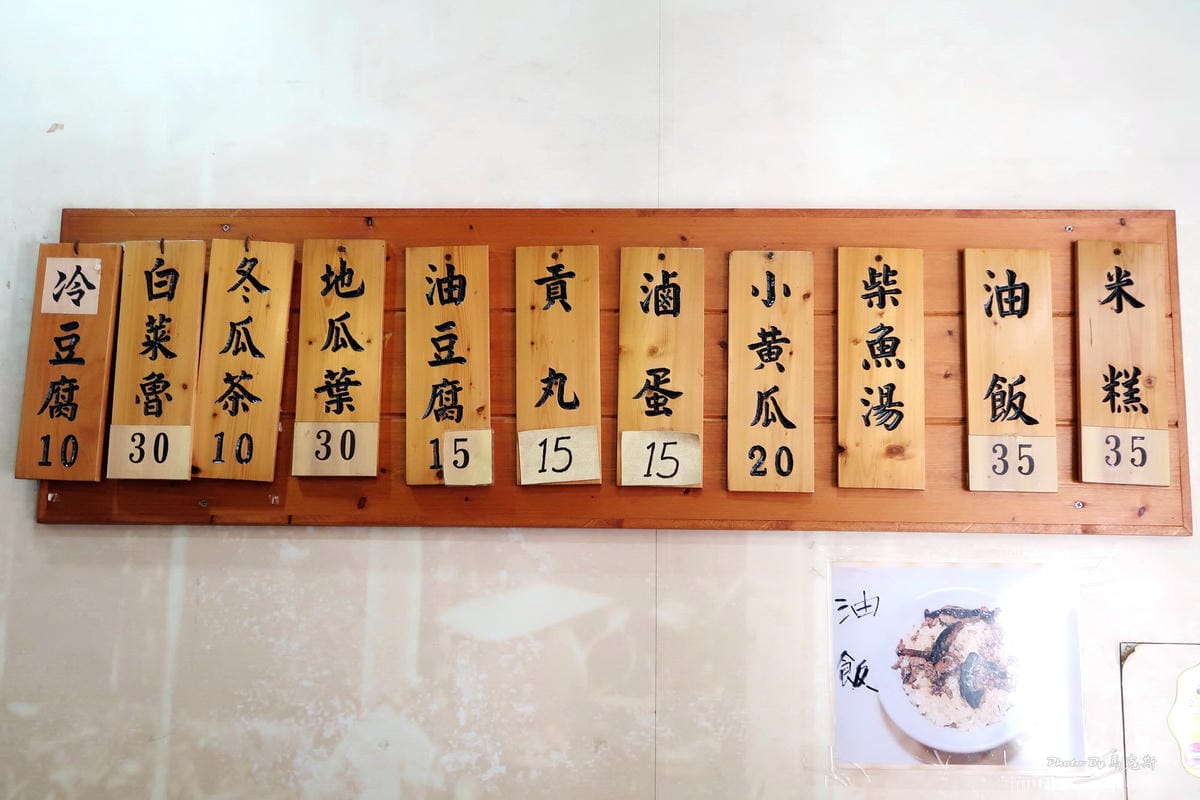 米糕 35
油飯 35
柴魚湯
小黃瓜 20
滷蛋 15
貢丸 15
油豆腐 15
地瓜葉 30
冬瓜茶 10
白菜魯 30
冷豆腐 10
油飯
Photo By 馬克斯